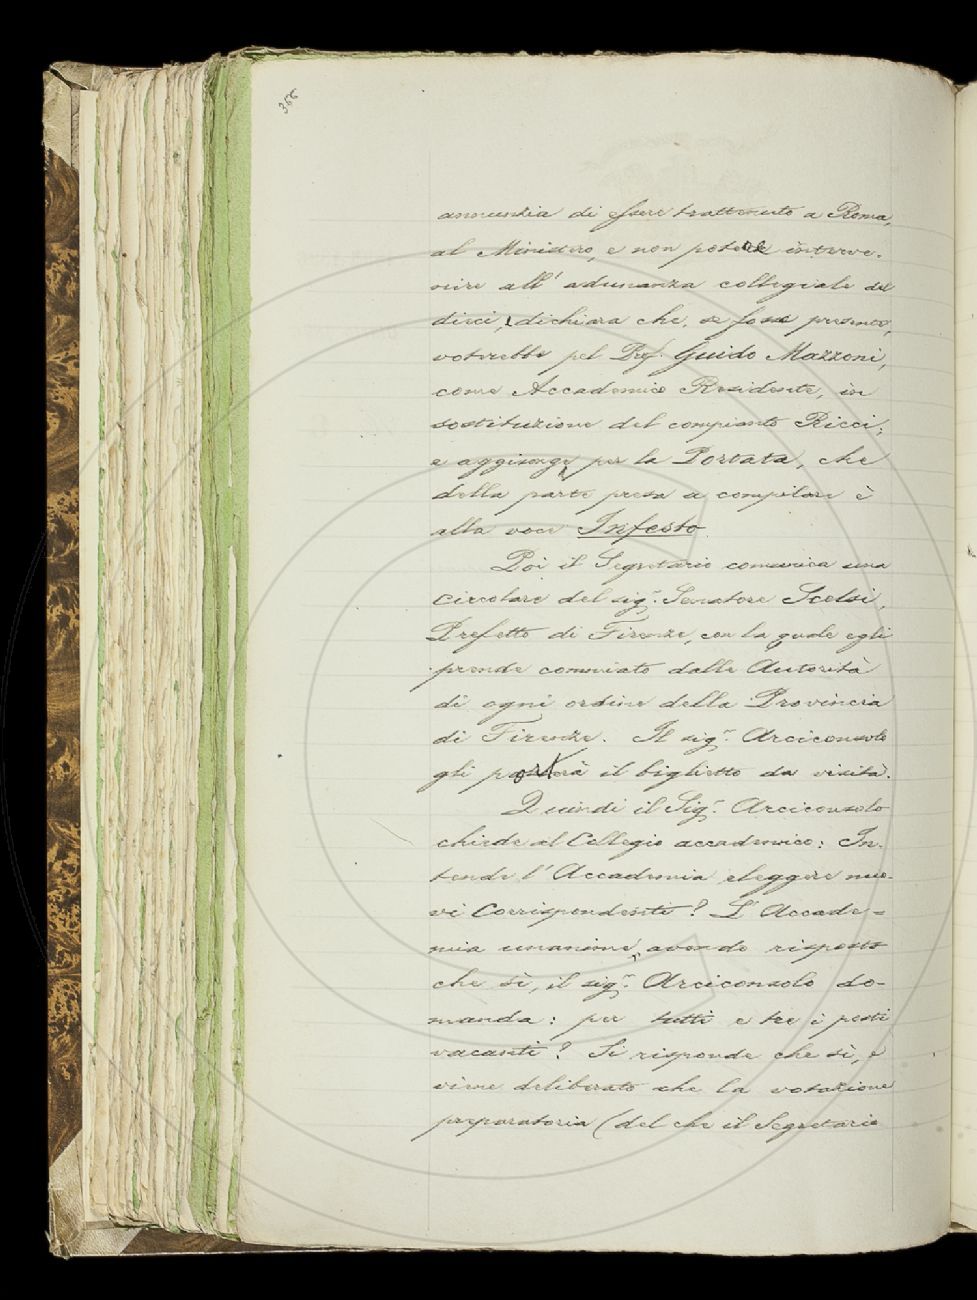 366
annunzia di essere trattenuto a Roma,
al Ministero, e non potere interve-
nire all' adunanza collegiale del
dieci, dichiara che, se fosse presente,
voterebbe pel Prof. Guido Mazzoni,
come Accademico Residente, in
sostituzione del compianto Ricci;
e aggiunge, per la Portata, che
della parte presa a compilare è
alla voce Infesto.
Poi il Segretario comunica una
circolare del sigr. Senatore Scelsi,
Prefetto di Firenze, con la quale egli
prende commiato dalle Autorità
di ogni ordine della Provincia
di Firenze. Il sigr. Arciconsolo
gli porterà il biglietto da visita.
Quindi il Sigr. Arciconsolo
chiede al Collegio accademico: In-
tende l' Accademia eleggere nuo-
vi Corrispondenti? L' Accade=
mia unanime, avendo risposto
che sì, il sigr. Arciconsolo do-
manda: per tutti e tre i posti
vacanti? Si risponde che sì, e
viene deliberato che la votazione
preparatoria (del che il Segretario